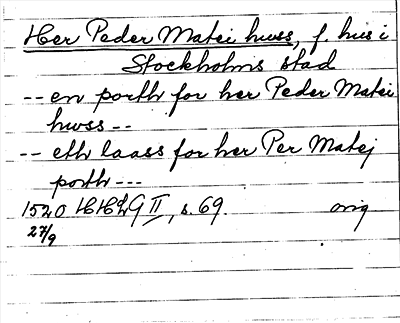 Her Peder Matei hwss, f. hus i
Stockholms stad
-- en porth for her Peder Matei
hwss --
-- eth laass for her Per Matej
porth ---
1520 HH2G II, s. 69. orig
27/9